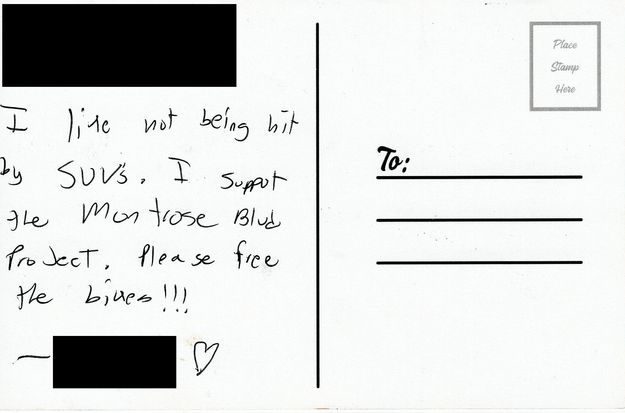 I like not being hit
by SUV's. I support
the Montrose Blvd
Project. Please free
the bikes!!!
— ♡
Place
Stamp
Here
To: